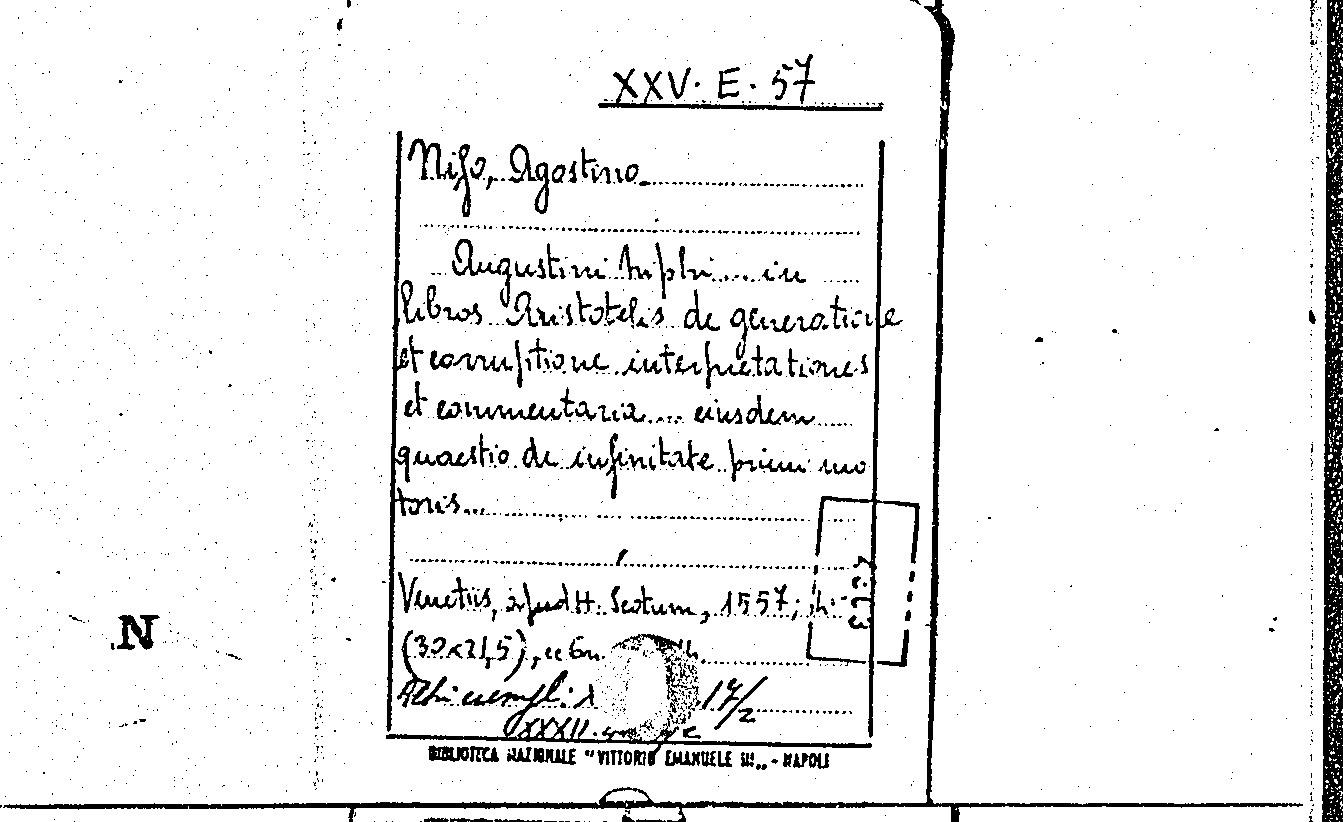 XXV. E. 57
Nifo, Agostino.
Augustini Niphi .... in
libros Aristotelis de generatione
et corruptione interpretationes
et commentaria .... eiusdem
quaestio de infinitate primi mo
toris...
Venetiis, apud H. Scotum, 1557;
(30x21,5),
Altri esempl: 17/2
XXXII.
N
BIBLIOTECA NAZIONALE "VITTORIO EMANUELE III„ - NAPOLI